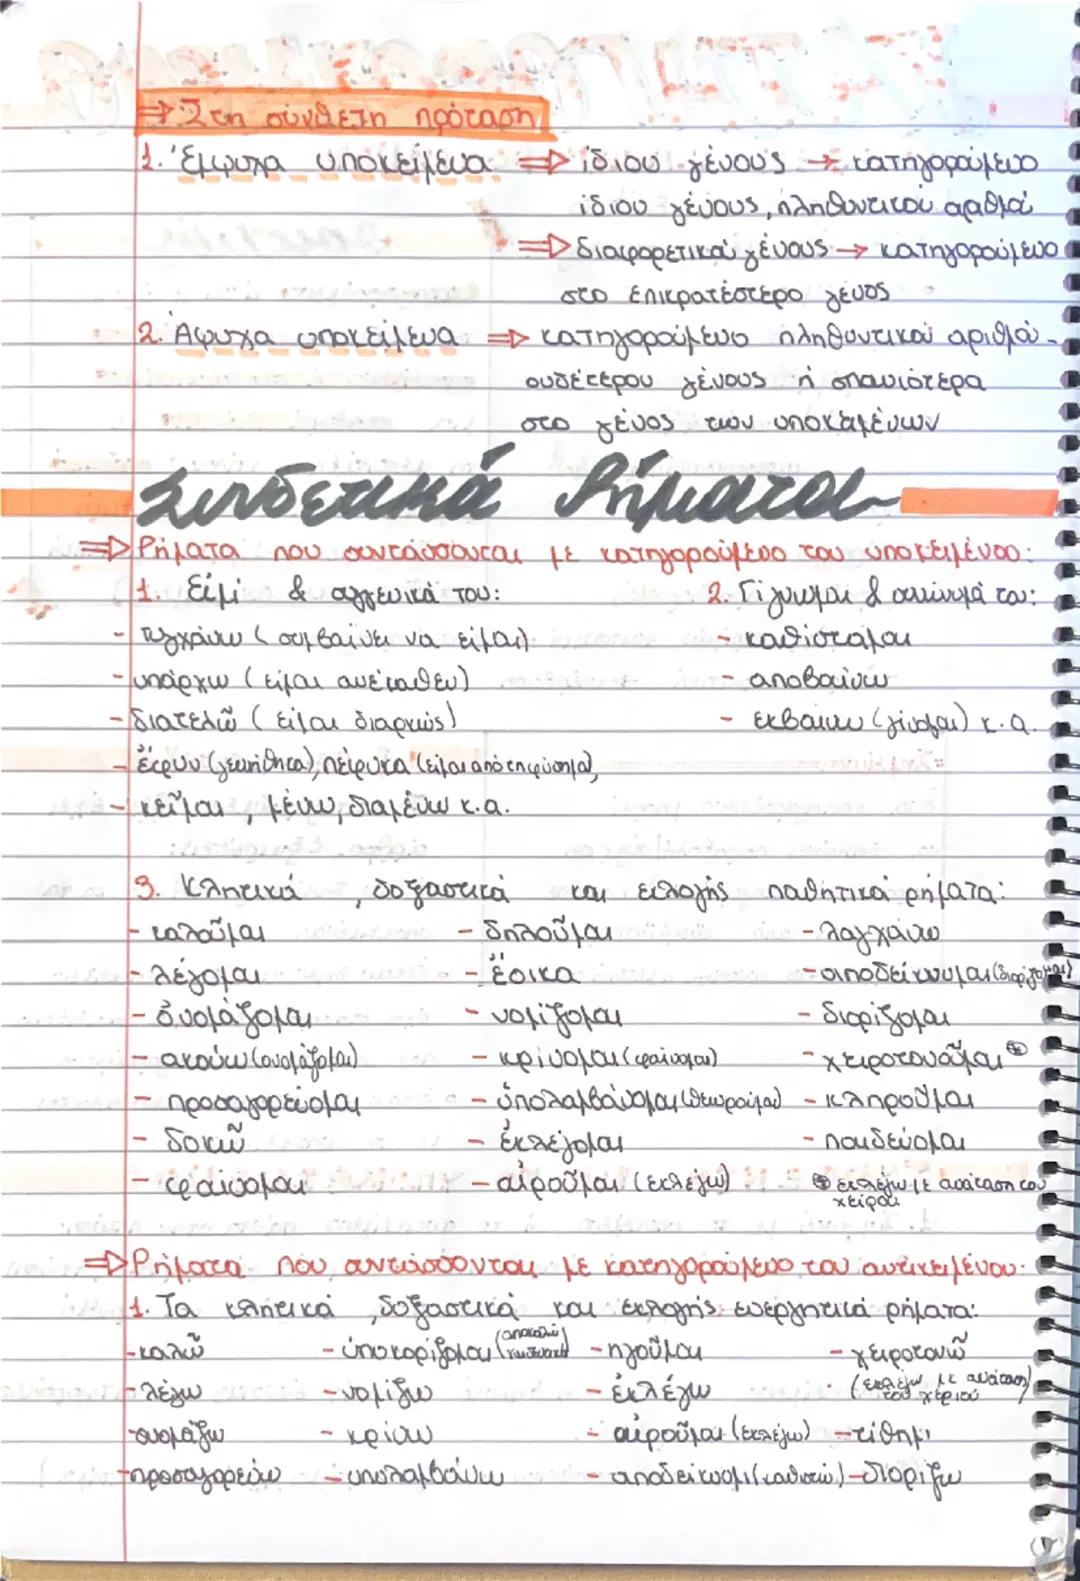 ⇒ Στη σύνθετη πρόταση
1. Έμψυχα υποκείμενα ⇒ ίδιου γένους → κατηγορούμενο
ίδιου γένους, πληθυντικού αριθμού
⇒ διαφορετικού γένους → κατηγορούμενο
στο επικρατέστερο γένος
2. Άψυχα υποκείμενα ⇒ κατηγορούμενο πληθυντικού αριθμού -
ουδέτερου γένους ή σπανιότερα
στο γένος των υποκειμένων
Συνδετικά Ρήματα
⇒ Ρήματα που συντάσσονται με κατηγορούμενο του υποκειμένου:
1. Εἰμί & συγγενικά του: 2. Γίγνομαι & συνώνυμά του:
- τυγχάνω (συμβαίνει να είμαι) - καθίσταμαι
- υπάρχω (είμαι ανέκαθεν) - αποβαίνω
- διατελῶ (είμαι διαρκώς) - εκβαίνω (γίνομαι) κ.α.
- ἔφυν (γεννήθηκα), πέφυκα (είμαι από τη φύση μου),
- κεῖμαι, μένω, διαμένω κ.α.
3. Κλητικά, δοξαστικά και εκλογής παθητικά ρήματα:
- καλοῦμαι - δηλοῦμαι - λαγχάνω
- λέγομαι - ἔοικα - αποδείκνυμαι (διορίζομαι)
- ὀνομάζομαι - νομίζομαι - διορίζομαι
- ακούω (ονομάζομαι) - κρίνομαι (φαίνομαι) - χειροτονοῦμαι ⊛
- προσαγορεύομαι - ὑπολαμβάνομαι (θεωρούμαι) - κληροῦμαι
- δοκῶ - ἐκλέγομαι - παιδεύομαι
- φαίνομαι - αἱροῦμαι (εκλέγω) ⊛ εκλέγω με ανάταση του
χεριού
⇒ Ρήματα που συντάσσονται με κατηγορούμενο του αντικειμένου:
1. Τα κλητικά, δοξαστικά και εκλογής ενεργητικά ρήματα:
- καλῶ - ὑποκορίζομαι (αποκαλώ χαϊδευτικά) - ηγοῦμαι - χειροτονῶ
- λέγω - νομίζω - ἐκλέγω (εκλέγω με ανάταση του χεριού)
- ονομάζω - κρίνω - αἱροῦμαι (εκλέγω) - τίθημι
- προσαγορεύω - υπολαμβάνω - αποδείκνυμι (καθιστώ) - διορίζω